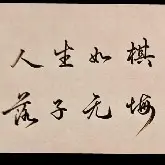 人生如棋
落子无悔